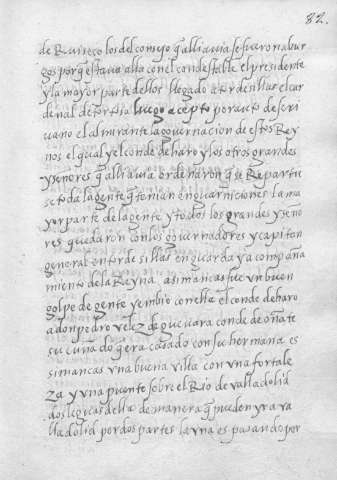 82.
de Rui seco los del consejo q̃ alli auia se fueron a bur
gos porq̃ estaua alta con el condestable el presidente
y la mayor parte dellos llegado a tordesillas el car
denal de tortosa luego acepto por auto de scri
uano el almirante la gouernacion destos Rey
nos el qual y el conde de haro y los otros grandes
y señores q̃ alli auia ordenaron q̃ se Repartie
se toda la gente q̃ tenian en guarniciones la ma
yor parte de la gente y todos los grandes y seño
res quedaron con los gouernadores y capitan
general en tordesillas en guarda y acompaña
miento de la Reyna a simancas fue vn buen
golpe de gente y embio con ella el conde de haro
a don pedro velez de gueuara conde de oñate
su cuñado q̃ era casado con su hermana es
simancas vna buena villa con vna fortale
za y vna puente sobre el Rio de valladolid
dos leguas della de manera q̃ pueden yr a va
lladolid por dos partes la vna es pasando por